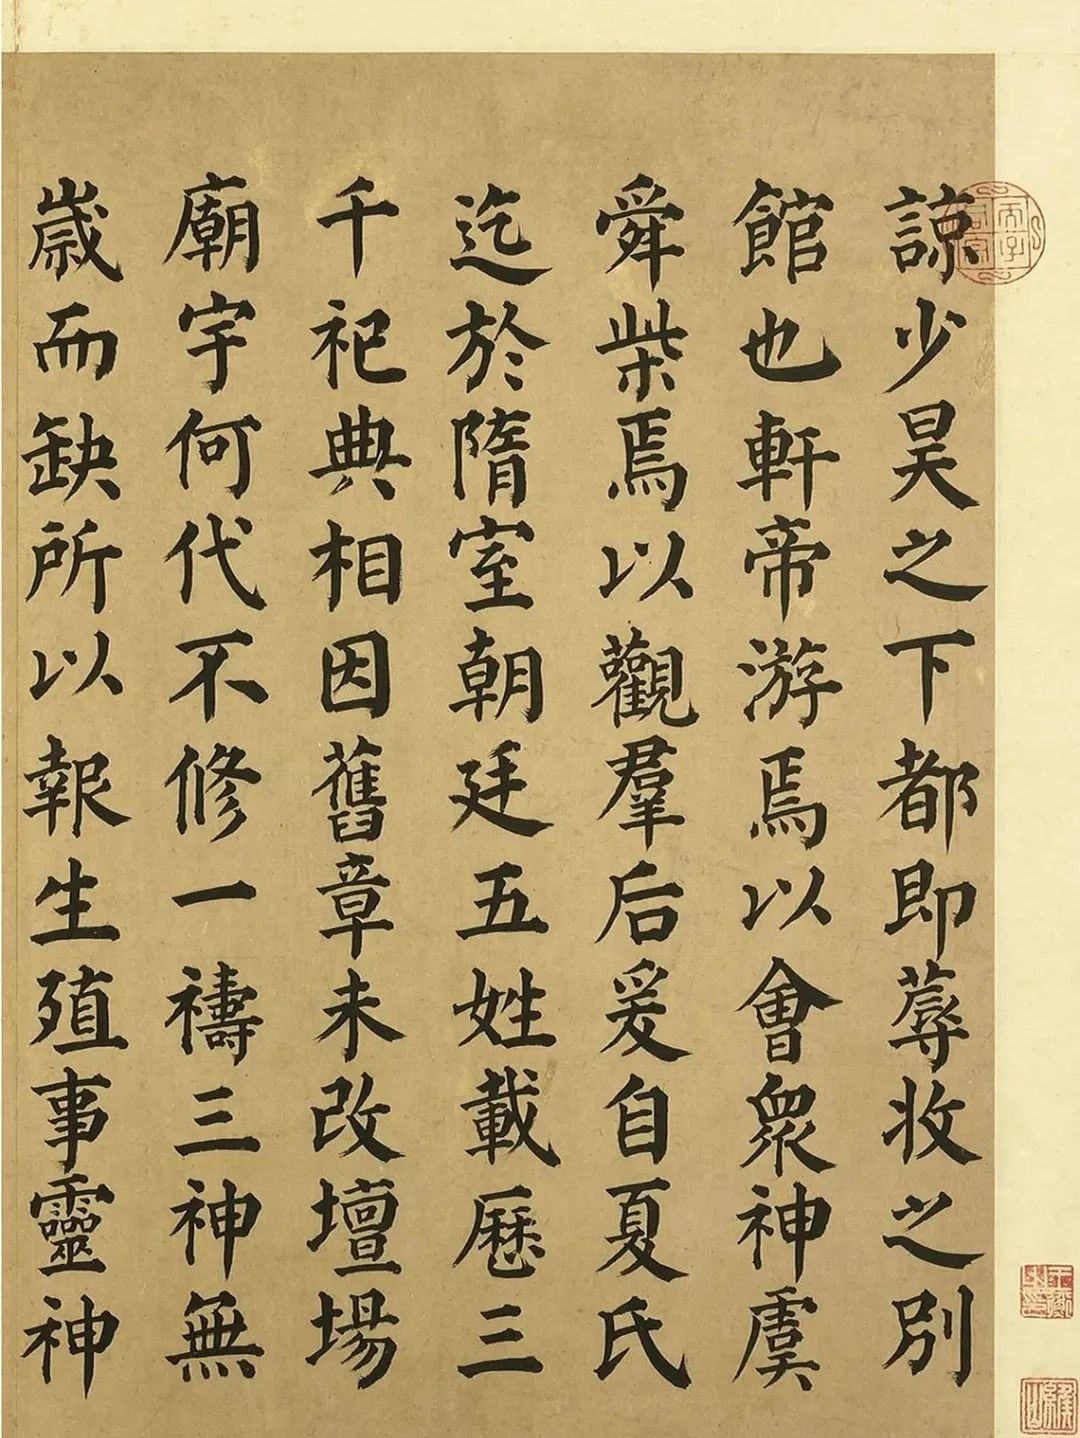 諒少昊之下都即蓐收之別
館也軒帝游焉以會眾神虞
舜柴焉以觀羣后爰自夏氏
迄於隋室朝廷五姓載歷三
千祀典相因舊章未改壇場
廟宇何代不修一禱三神無
歲而缺所以報生殖事靈神